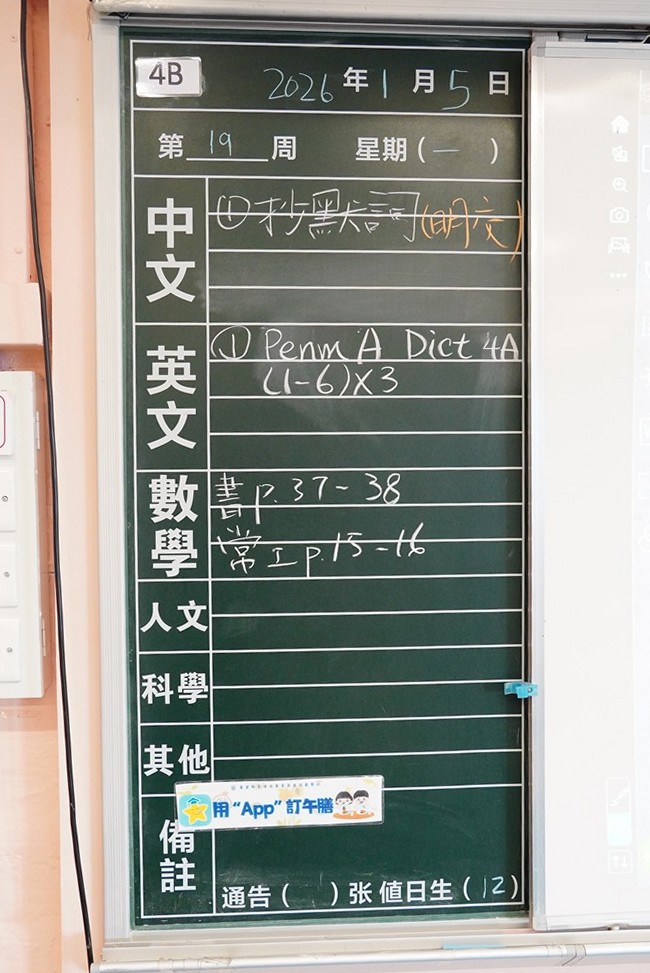 4B
2026年1月5日
第19周 星期(一)
中文
①抄默詞(明交)
英文
① Penm A Dict 4A
(1-6)×3
數學
書p.37-38
常工p.15-16
人文
科學
其他
用“App”訂午膳
備註
通告( )张 值日生(12)